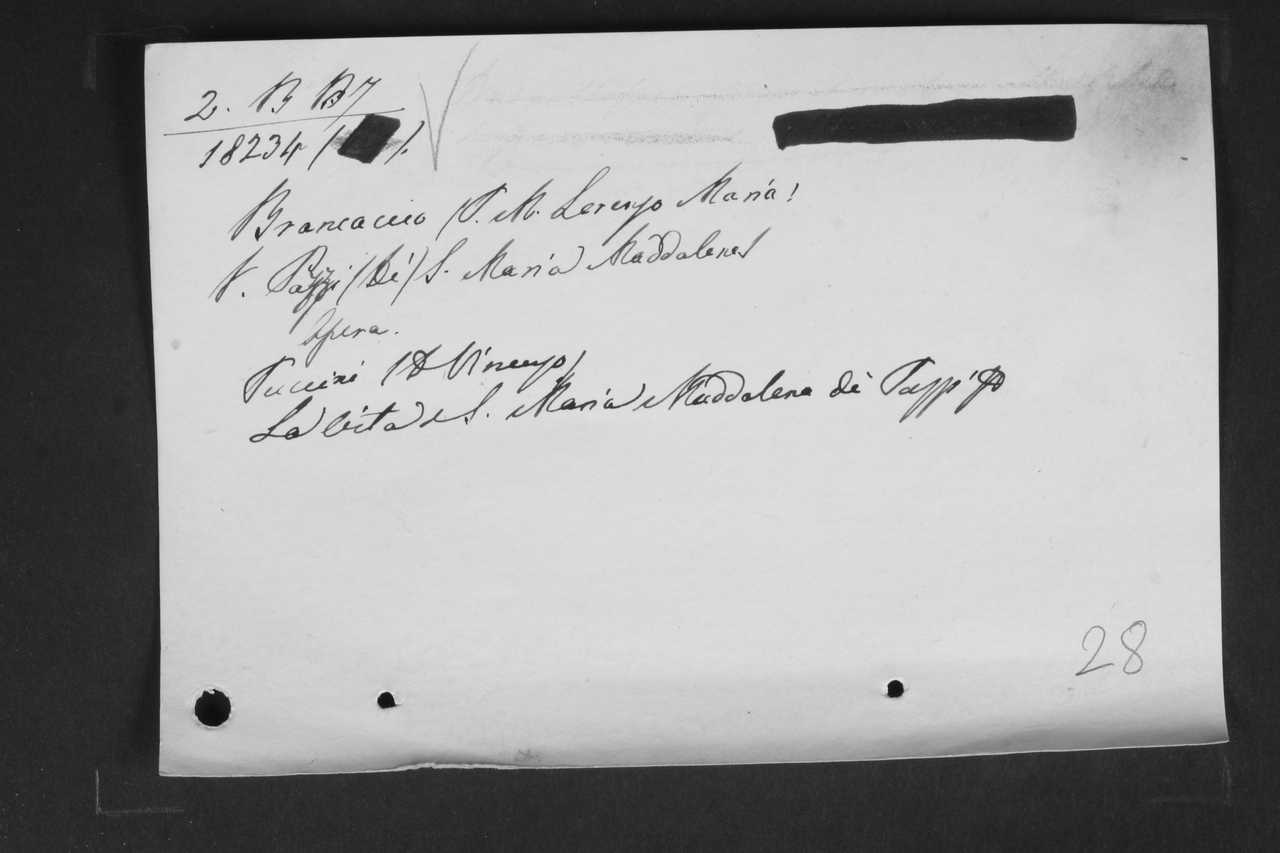 2. B B7
18234 (
Brancaccio (P. M. Lorenzo Maria)
V. Pazzi (Dé) S. Maria Maddalena
Opera.
Puccini (D Vincenzo)
La Vita di S. Maria Maddalena dé Pazzi
28